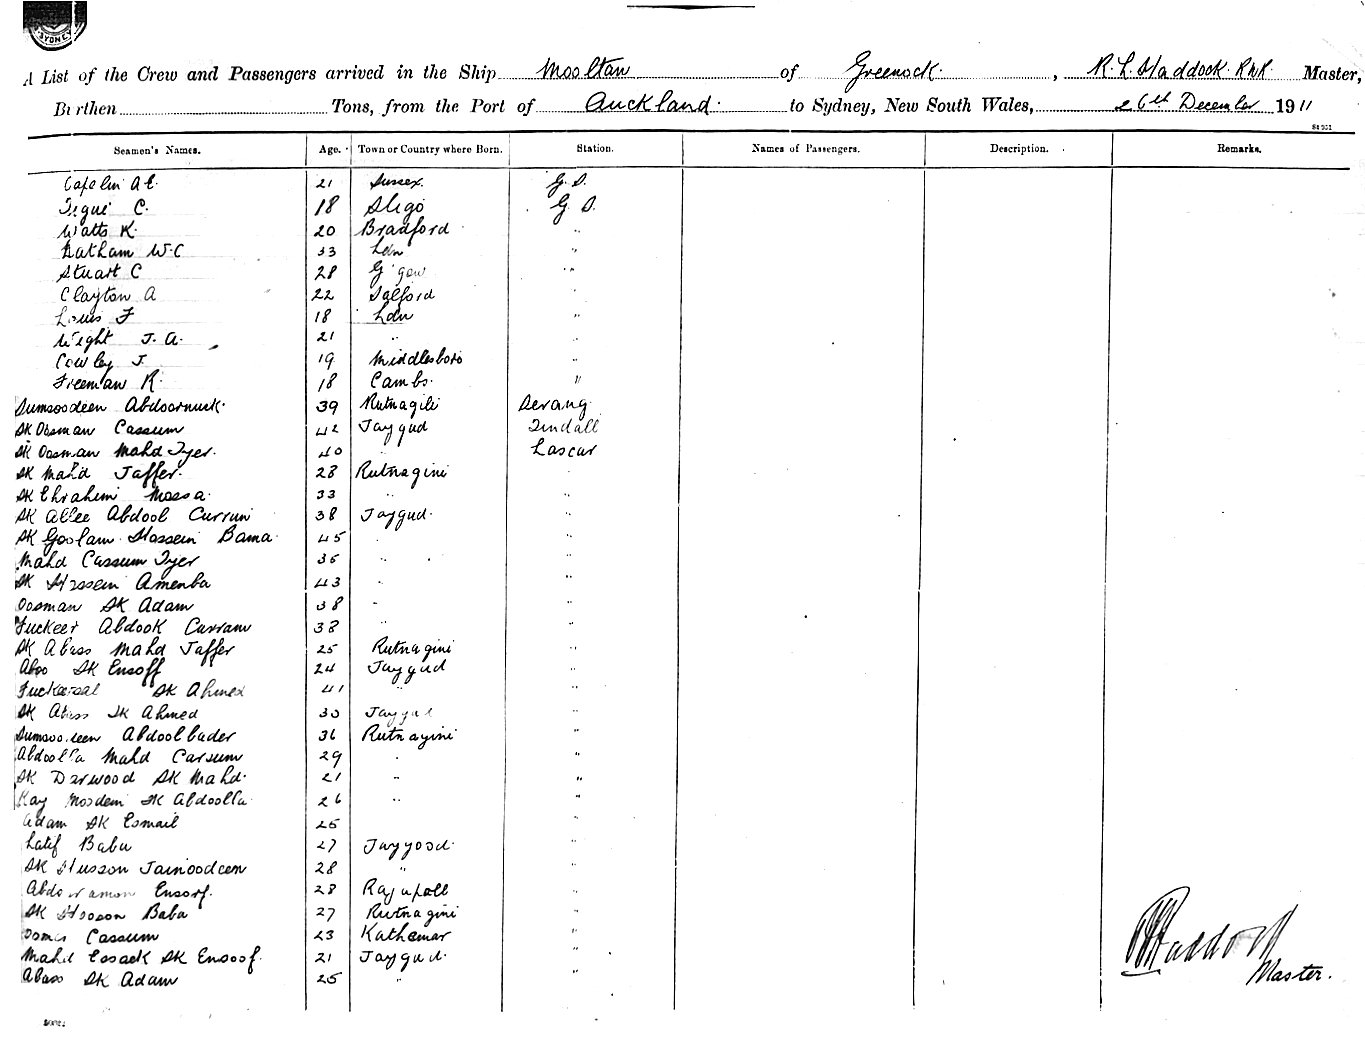 SYDNEY
A List of the Crew and Passengers arrived in the Ship Mooltan of Greenock, R. L. Haddock RNR Master,
Burthen Tons, from the Port of Auckland to Sydney, New South Wales, 26th December 1911
Seamen's Names. Age. Town or Country where Born. Station. Names of Passengers. Description. Remarks.
Capelin A E. 21 Sussex. G. S.
Tigue C. 18 Sligo G S.
Watts K. 20 Bradford "
Natham W.C 33 Ldn "
Stuart C 28 G'gow "
Clayton A 22 Salford "
Louis F 18 Ldn "
Wright J. A. 21 " "
Cowley J. 19 Middlesboro "
Freeman R. 18 Cambs. "
Sumsoodeen Abdoornuck. 39 Rutnagili Serang
SK Oosman Cassum 42 Jaygud Tindall
SK Oosman Mahd Iyer. 40 " Lascar
SK Mahd Jaffer. 28 Rutnagini "
SK Ebrahim Moosa. 33 " "
SK Allee Abdool Currim 38 Jaygud. "
SK Goolam Hossein Bama 45 " "
Mahd Cassum Iyer 35 " "
SK Hossein Amenba 43 " "
Oosman SK Adam 38 " "
Fuckeer Abdook Curram 38 " "
SK Abass Mahd Jaffer 25 Rutnagini "
Aboo SK Ensoff 24 Jaygud "
SK Ahmed 41 " "
SK Abass SK Ahmed 30 Jaygud "
Sumsoodeen Abdoolbader 36 Rutnagini "
Abdoolla Mahd Carsum 29 " "
SK Dawood SK Mahd. 21 " "
Kay Mosdem SK Abdoolla 26 " "
Adam SK Esmail 25 "
Latif Baba 27 Jaygood. "
SK Husson Jainoodeen 28 " "
Abdooramon Ensoof. 28 Rajapoll "
SK Hooson Baba 27 Rutnagini "
Cassum 23 Kathemar "
Mahd Esack SK Ensoof. 21 Jaygud. "
Abass SK Adam 25 " "
R L Haddock
Master.